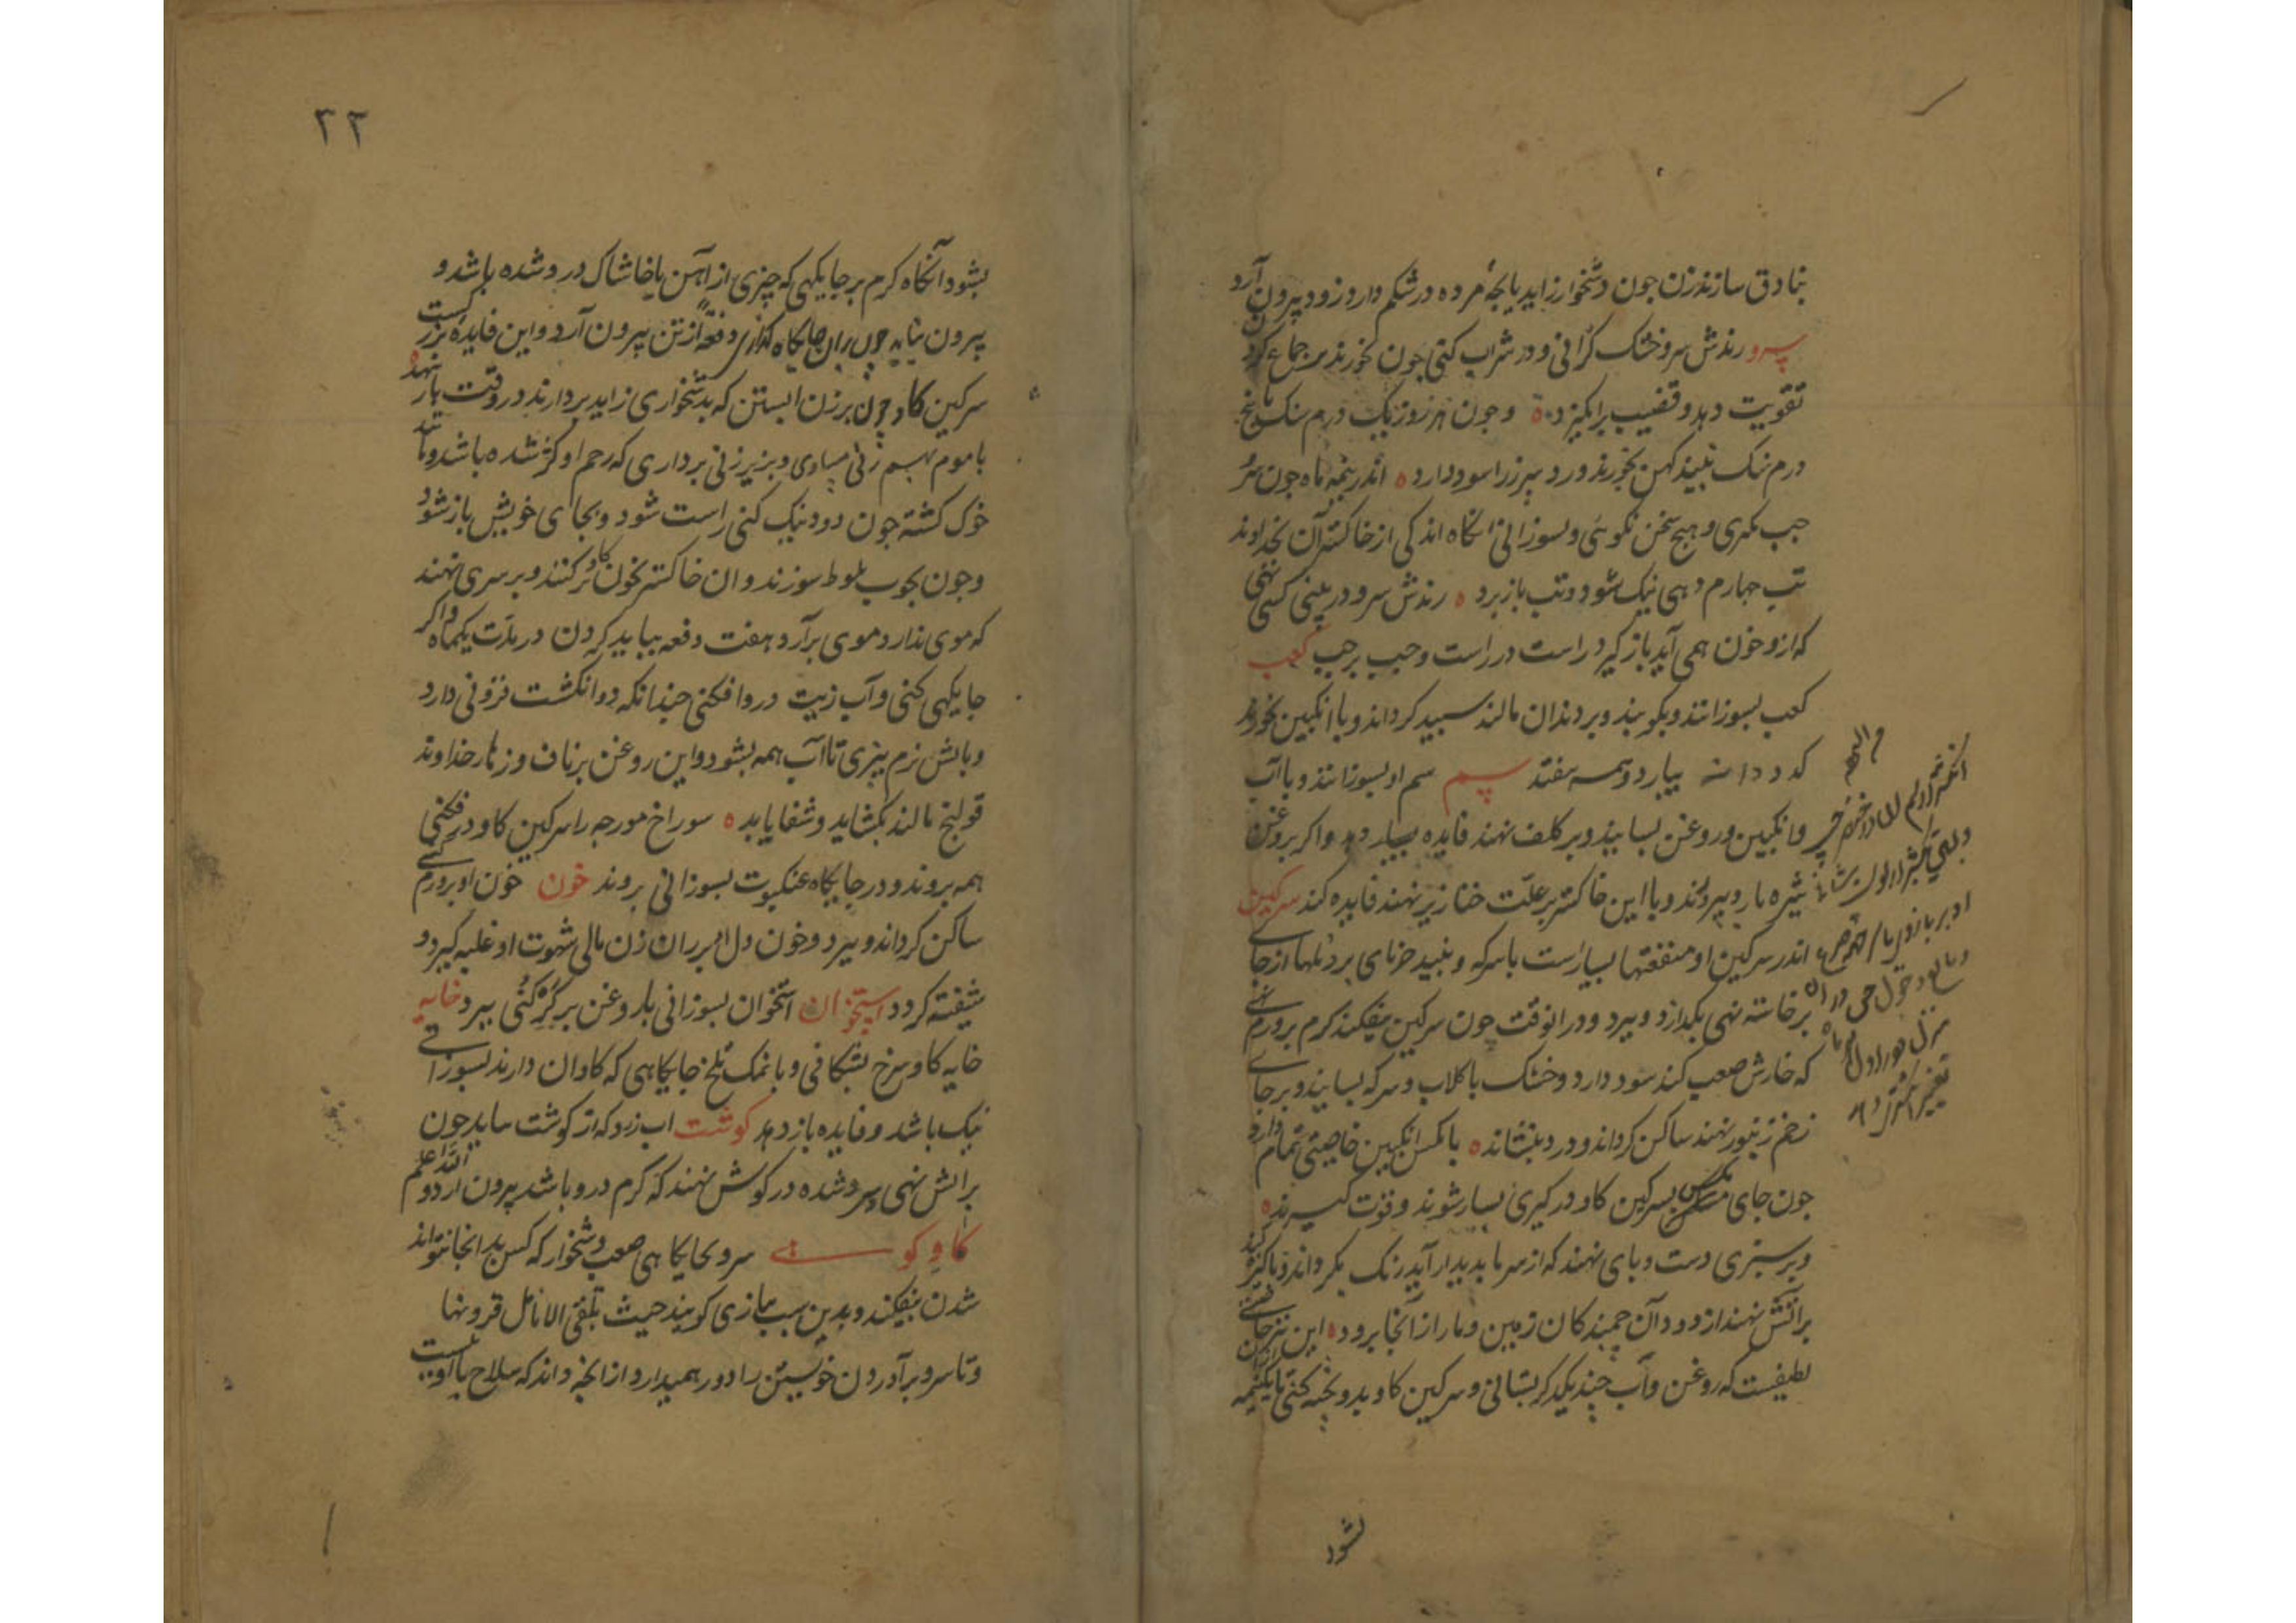 بنادق سازند زن جون دشخوار زاید یا بجهٔ مرده در شکم دارد زود بیرون آرد
سرو رندش سرو خشک کرانی و در شراب کنی جون خورند بر جماع کردن
تقویت دهد و قضیب برانکیزد ه و جون هر روز یک درم سنک با پنج
درم سنک نبیذ کهن بخورند درد سپرز را سود دارد ه اندر نیمه ماه جون سر
جب بکری و هیج سخن نکوئی و بسوزانی انکاه اندکی از خاکستر آن بخداوند
تب جهارم دهی نیک شود و تب بازبرد ه رندش سرو در بینی کسی نهی
که ازو خون همی آید باز کیرد راست در راست و جب بر جب کعب
کعب بسوزانند و بکوبند و بر دندان مالند سبید کرداند و با انکبین بخورند
کدودانه بیارد و همه بیفتد سم سم او بسوزانند و با آب
و انکبین و روغن بسایند و بر کلف نهند فایده بسیار دهد و اکر بروغن
شیره بار و بپروند و با این خاکستر بر علّت خنازیر نهند فایده کند سرکین
اندر سرکین او منفعتها بسیارست با سرکه و نبید خرمای بر دملها از جای
برخاسته نهی بکدازد و ببرد و در انوقت جون سرکین بیفکند کرم بر ورم نهی
که خارش صعب کند سود دارد و خشک با کلاب و سرکه بسایند و بر جای
زخم زنبور نهند ساکن کرداند و درد بنشاند ه با مکس انکبین خاصیتی تمام دارد
جون جای مکس بسرکین کاو در کیری بسیار شوند و قوّت کیرند ه
و بر سبزی دست و بای نهند که از سرما بدیدار آید رنک بکرداند و پاکیزه کند
بر آتش نهند از دود آن جمبندکان زمین و مار از آنجا برود ه این نیز خاصیتی
لطیفست که روغن و آب جند یکدیکر بستانی و سرکین کاو بدو پخته کنی تا یک نیمه
بشود
۲۲
بشود آنکاه کرم بر جایکهی که چیزی از آهن یا خاشاک درو شده باشد و
بیرون نیاید جون بران جایکاه کذاری دفعةً از تن بیرون آرد و این فایدهٔ بزرکست
سرکین کاو جون بر زن ابستن که بدشخواری زاید بردارند در وقت بار بنهد
با موم بهم زنی مساوی و بزیر زنی برداری که رحم او کژ شده باشد و مانند
خوک کشته جون دود نیک کنی راست شود و بجای خویش باز شود
و جون بجوب بلوط سوزند و ان خاکستر بخون کاو تر کنند و بر سری نهند
که موی ندارد موی برآرد هفت دفعه بباید کردن در مدّت یکماه و اکر
جایکهی کنی و آب زیت درو افکنی جندانکه دو انکشت فزونی دارد
و باتش نرم بپزی تا آب همه بشود و این روغن بر ناف و زهار خداوند
قولنج مالند بکشاید و شفا یابد ه سوراخ مورجه را سرکین کاو در فکنی
همه بروند و در جایکاه عنکبوت بسوزانی بروند خون خون او بر ورم کنی
ساکن کرداند و ببرد و خون دل او بر ران زن مالی شهوت او غلبه کیرد و
شیفته کردد استخوان استخوان بسوزانی با روغن بر کر کنی ببرد خایه
خایه کاو سرخ بشکافی و با نمک تلخ جایکاهی که کاوان دارند بسوزانی
نیک باشد و فایده باز دهد کوشت اب زرد که از کوشت ساید جون
بر اتش نهی سرد شده در کوش نهند که کرم درو باشد بیرون ارد و اللّه اعلم
کاو کوهی سرو بجایکاهی صعب دشخوار که کس بدانجا نتواند
شدن بیفکند و بدین سبب بتازی کویند حیث تلقی الانامل قرونها
و تا سرو برآوردن خویشتن را دور همیدارد از انجه داند که سلاح با او نیست